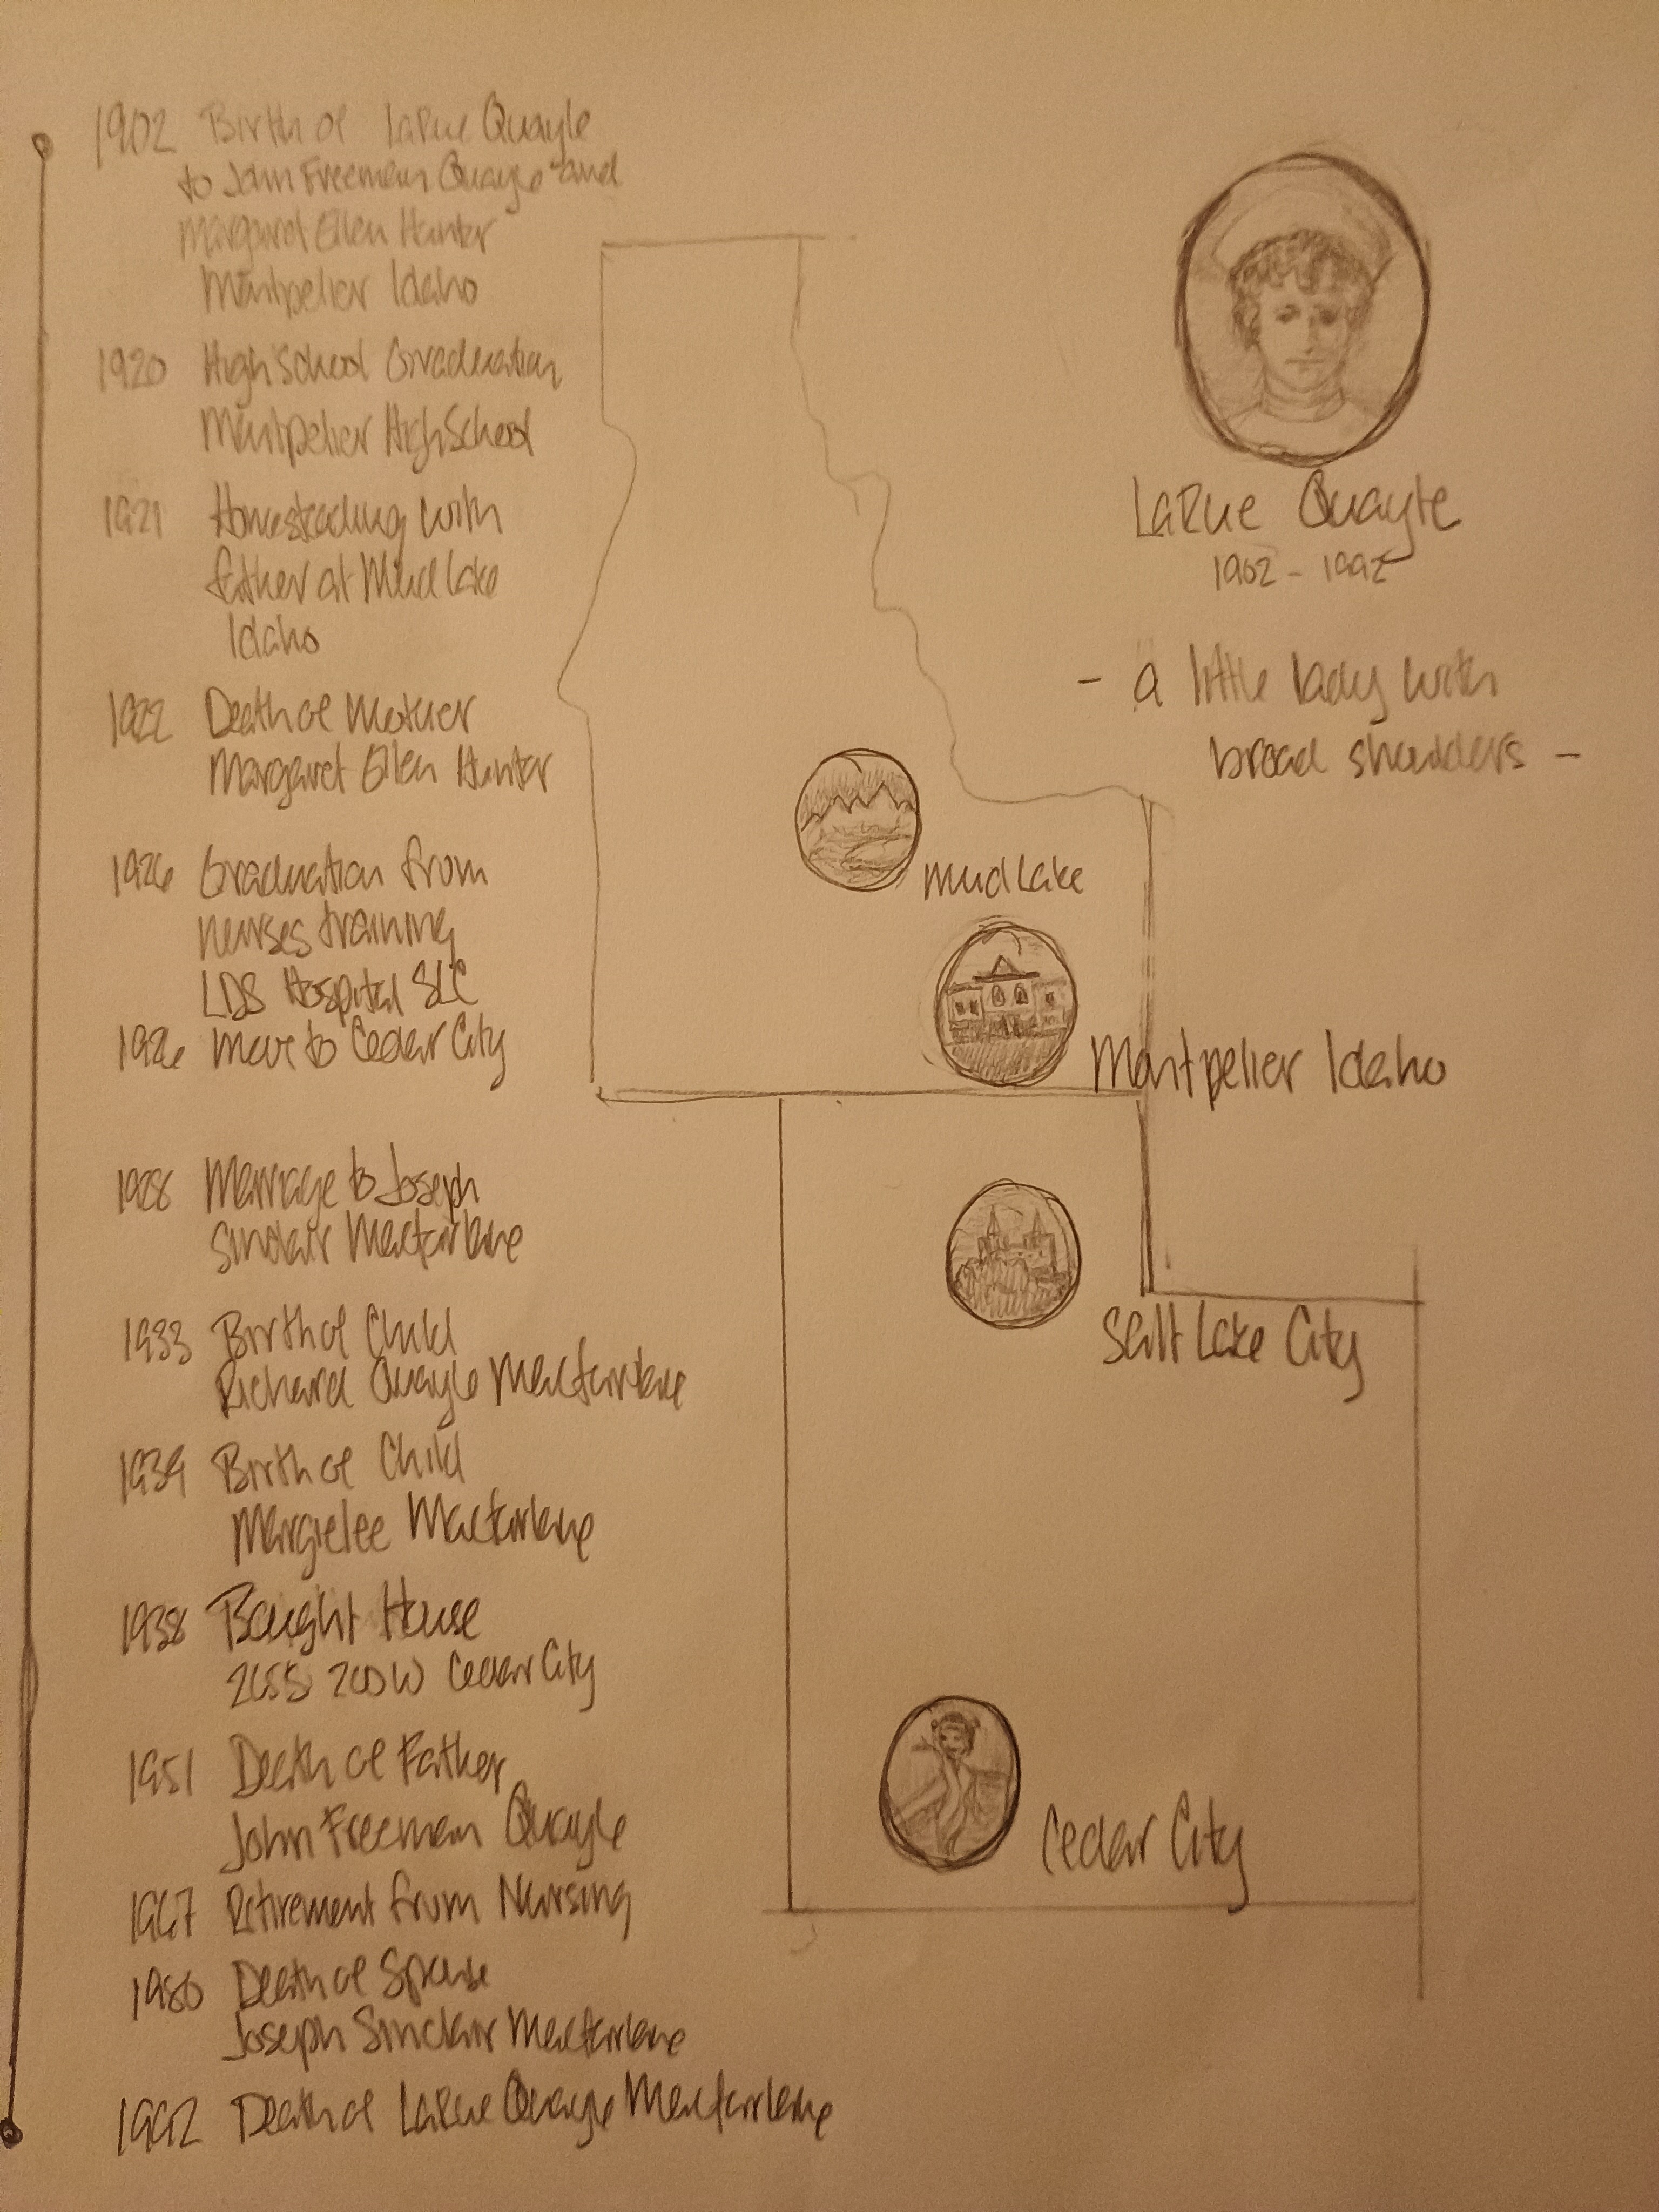 1902 Birth of LaRue Quayle
to John Freeman Quayle and
Margaret Ellen Hunter
Montpelier Idaho
1920 High School Graduation
Montpelier High School
1921 Homesteading with
father at Mud Lake
Idaho
1922 Death of Mother
Margaret Ellen Hunter
1926 Graduation from
nurses training
LDS Hospital SLC
1926 move to Cedar City
Marriage to Joseph
Sinclair Macfarlane
1933 Birth of Child
Richard Quayle Macfarlane
Birth of Child
Margielee Macfarlane
1938 Bought House
200 W Cedar City
1951 Death of Father
John Freeman Quayle
1967 Retirement from Nursing
1980 Death of Spouse
Joseph Sinclair Macfarlane
1992 Death of LaRue Quayle Macfarlane
LaRue Quayle
1902 -
- a little lady with
broad shoulders -
Mud Lake
Montpelier Idaho
Salt Lake City
Cedar City